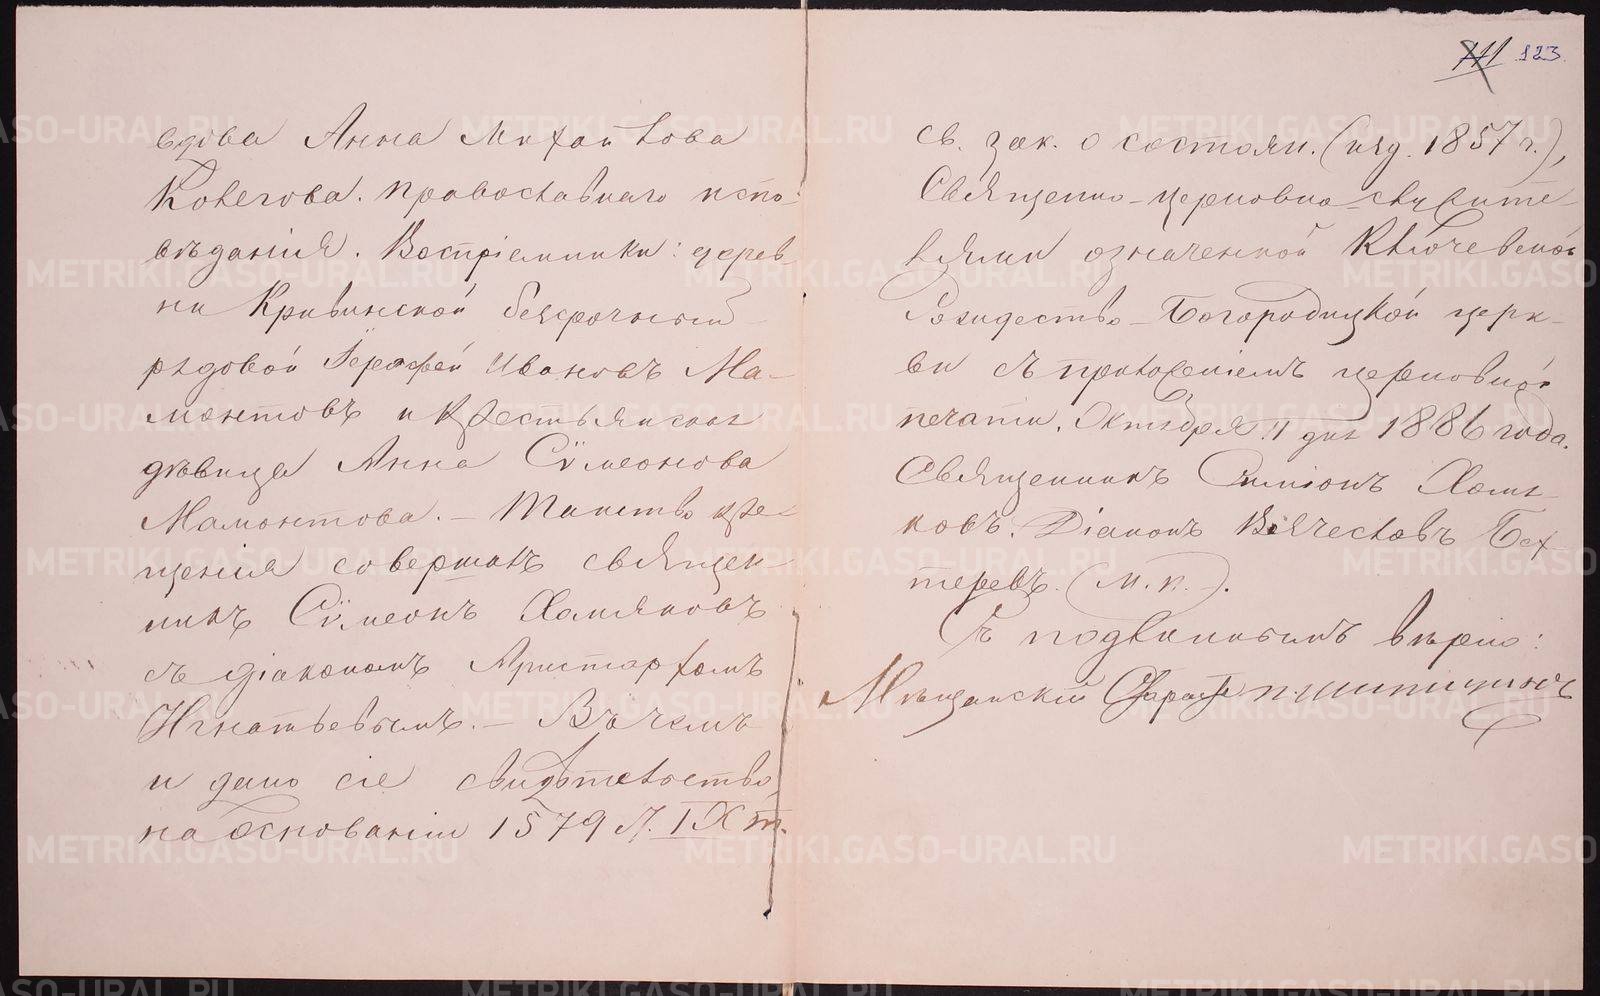 вдова Анна Михайлова
Колегова. православнаго испо-
вѣданія. Воспріемники: дерев-
ни Кривинской безсрочный
рядовой Іерофей Ивановъ Ма-
монтовъ и крестьянская
дѣвица Анна Сѵмеонова
Мамонтова. – Таинство кре-
щенія совершалъ священ-
никъ Сѵмеонъ Хомяковъ
съ діакономъ Аристархомъ
Игнатьевымъ. – Въ чемъ
и дано сіе свидѣтельство,
на основаніи 1579 л. IX т.
111 123
св. зак. о состоян. (изд. 1857 г.),
Священно-церковно-служите-
лями означенной Ключевской
Рождество-Богородицкой церк-
ви съ приложеніемъ церковной
печати. Октября 11 дня 1886 года.
Священникъ Симіонъ Хомя-
ковъ. Діаконъ Вячеславъ Бех-
теревъ. (М. п. –).
Съ подлиннымъ вѣрно:
Мѣщанскій Староста
METRIKI.GASO-URAL.RU